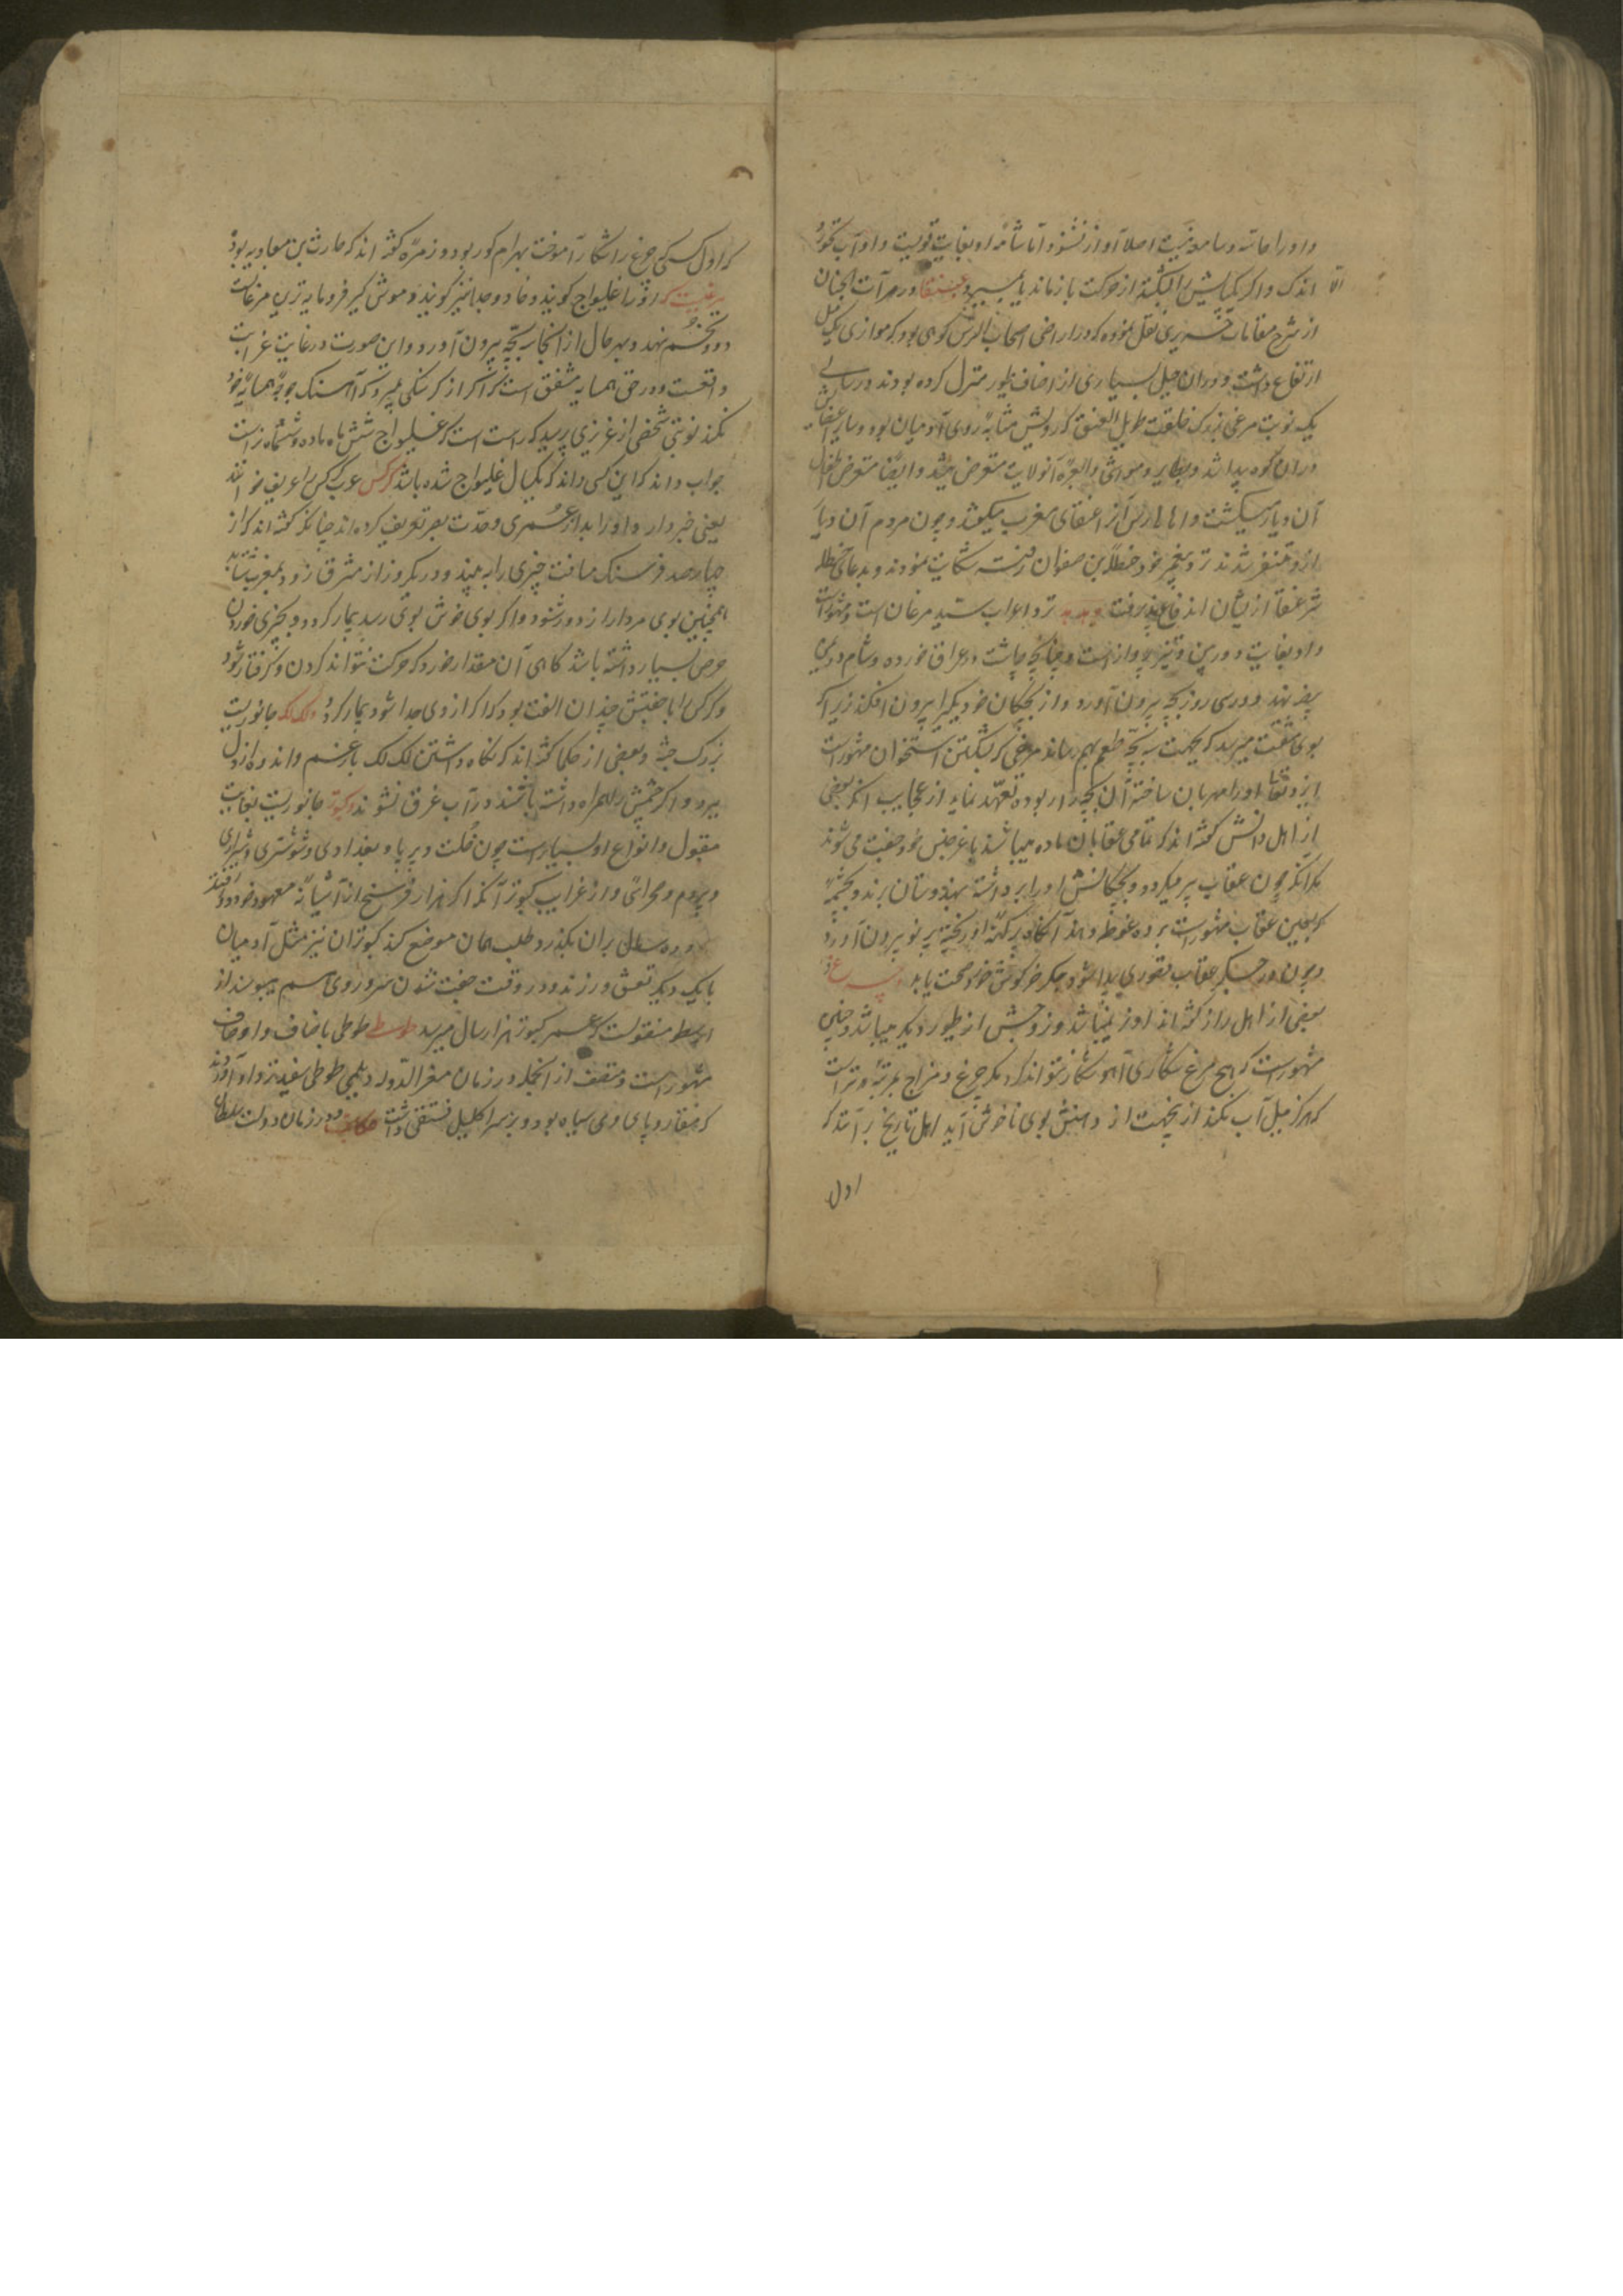 و او را حاسهٔ سامعه نیست اصلا آواز نشنود اما شامهٔ او بغایت قویست و او آب نخورد
الا اندک و اگر یکپایش را بشکنند از حرکت باز ماند یا بمیرد عنقا در مرآت الجنان
از شرح مقامات حریری نقل نموده که در اراضی اصحاب الرس کوهی بود که موازی یک میل
ارتفاع داشت و در آن جبل بسیاری از اصناف طیور منزل کرده بودند در سالی
یک نوبت مرغی بزرگ خلقت طویل العنق که رویش مشابه روی آدمیان بود و سایر اعضایش
در آن کوه پیدا شد و بطایر و مواشی آن ولایت متعرض میشد و ایضا متعرض اطفال
آن دیار میگشت و اهالی رس آنرا عنقای مغرب میگفتند و چون مردم آن دیار
ازو متنفر شدند نزد پیغمبر خود حنظلة بن صفوان رفته شکایت نمودند و بدعای حنظله
شر عنقا ازیشان اندفاع پذیرفت نزد اعراب سید مرغان است و مشهور است
و او بغایت دوربین و تیز پرواز است چنانچه چاشت در عراق خورده و شام در یمن
بیضه نهد و در سی روز بچه بیرون آورد و از بچگان خود یکی را بیرون افکند زیرا که
بوی مشقت میرسد که بجهت سه بچه طعمه بهم رساند مرغی که بشکستن استخوان مشهور است
ایزد تعالی او را مهربان ساخته آن بچه را ربوده تعهد نماید از عجایب آنکه بعضی
از اهل دانش گفته اند که تمامی عقابان ماده میباشند با غیر جنس خود جفت می شوند
بدانکه چون عقاب پیر میگردد و بچگانش او را برداشته بهندوستان برند و بچشمهٔ
که بعین عقاب مشهور است برده غوطه دهند آنگاه پر کهنه او ریخته پر نو بیرون آورد
و چون در جگر عقاب قصوری پیدا شود جگر خرگوش خورد صحت یابد چرغ
بعضی از اهل راز گفته اند او نر نمیباشد و زوجش از طیور دیگر میباشد و چنین
مشهور است که هیچ مرغ شکاری آهو شکار نتواند کرد مگر چرغ و مزاج بمرتبهٔ تر است
که هرگز میل آب نکند ازینجهت از دهنش بوی ناخوش آید اهل تاریخ بر آنند که
اول
که اول کسی که چرغ را شکار آموخت بهرام گور بود و زمره گفته اند که حارث بن معاویه بود
مرغیست که او را غلیواج گویند و خاد و جدا نیز گویند و موش گیر فرومایه ترین مرغانست
دو تخم نهد و بهر حال از آنجا سه بچه بیرون آورد و این صورت در غایت غرابت
واقعست و در حق همسایه مشفق است که اگر از گرسنگی بمیرد آهنگ جوجهٔ همسایه خود
نکند نوبتی شخصی از عزیزی پرسید که راست است که غلیواج شش ماه ماده و ششماه نر است
جواب داد که این کسی داند که یکسال غلیواج شده باشد کرکس عرب کرکس را عریف خوانند
یعنی خبردار و او را بدرازعمری و حدت بصر تعریف کرده اند چنانکه گفته اند که از
چهارصد فرسنگ مسافت چیزی را به بیند و در یکروز از مشرق زود بمغرب شتابد
همچنین بوی مردار از دور شنود و اگر بوی خوش بوی رسد بیمار گردد و بچیزی خوردن
حرص بسیار داشته باشد گاهی آن مقدار خورد که حرکت نتواند کردن و گرفتار شود
و کرکس را با جفتش چندان الفت بود که اگر از وی جدا شود بیمار گردد لکلک جانوریست
بزرگ جثه و بعضی از حکما گفته اند که نگاه داشتن لک لک بار غم و اندوه از دل
ببرد و اگر چشمش را همراه داشته باشند در آب غرق نشوند کبوتر جانوریست بغایت
مقبول و انواع او بسیارست چون و پرپا و بغدادی و شوشتری و شیرازی
و پردم و صحرائی و از غرایب کبوتر آنکه اگر هزار فرسخ از آشیانهٔ معهود خود دور افتد
و ده سال بران بگذرد طلب همان موضع کند کبوتران نیز مثل آدمیان
با یک دیگر تعشق ورزند و در وقت جفت شدن سر و روی هم ببوسند از
ارسطو منقولست که عمر کبوتر هزار سال میرسد طوطی باصناف و اوصاف
مشهور است و متصف از آنجمله در زمان معز الدوله دیلمی طوطی سفید نزد او آوردند
که منقار و پای وی سیاه بود و بر سر اکلیل فستقی داشت حکایت در زمان دولت سلطان